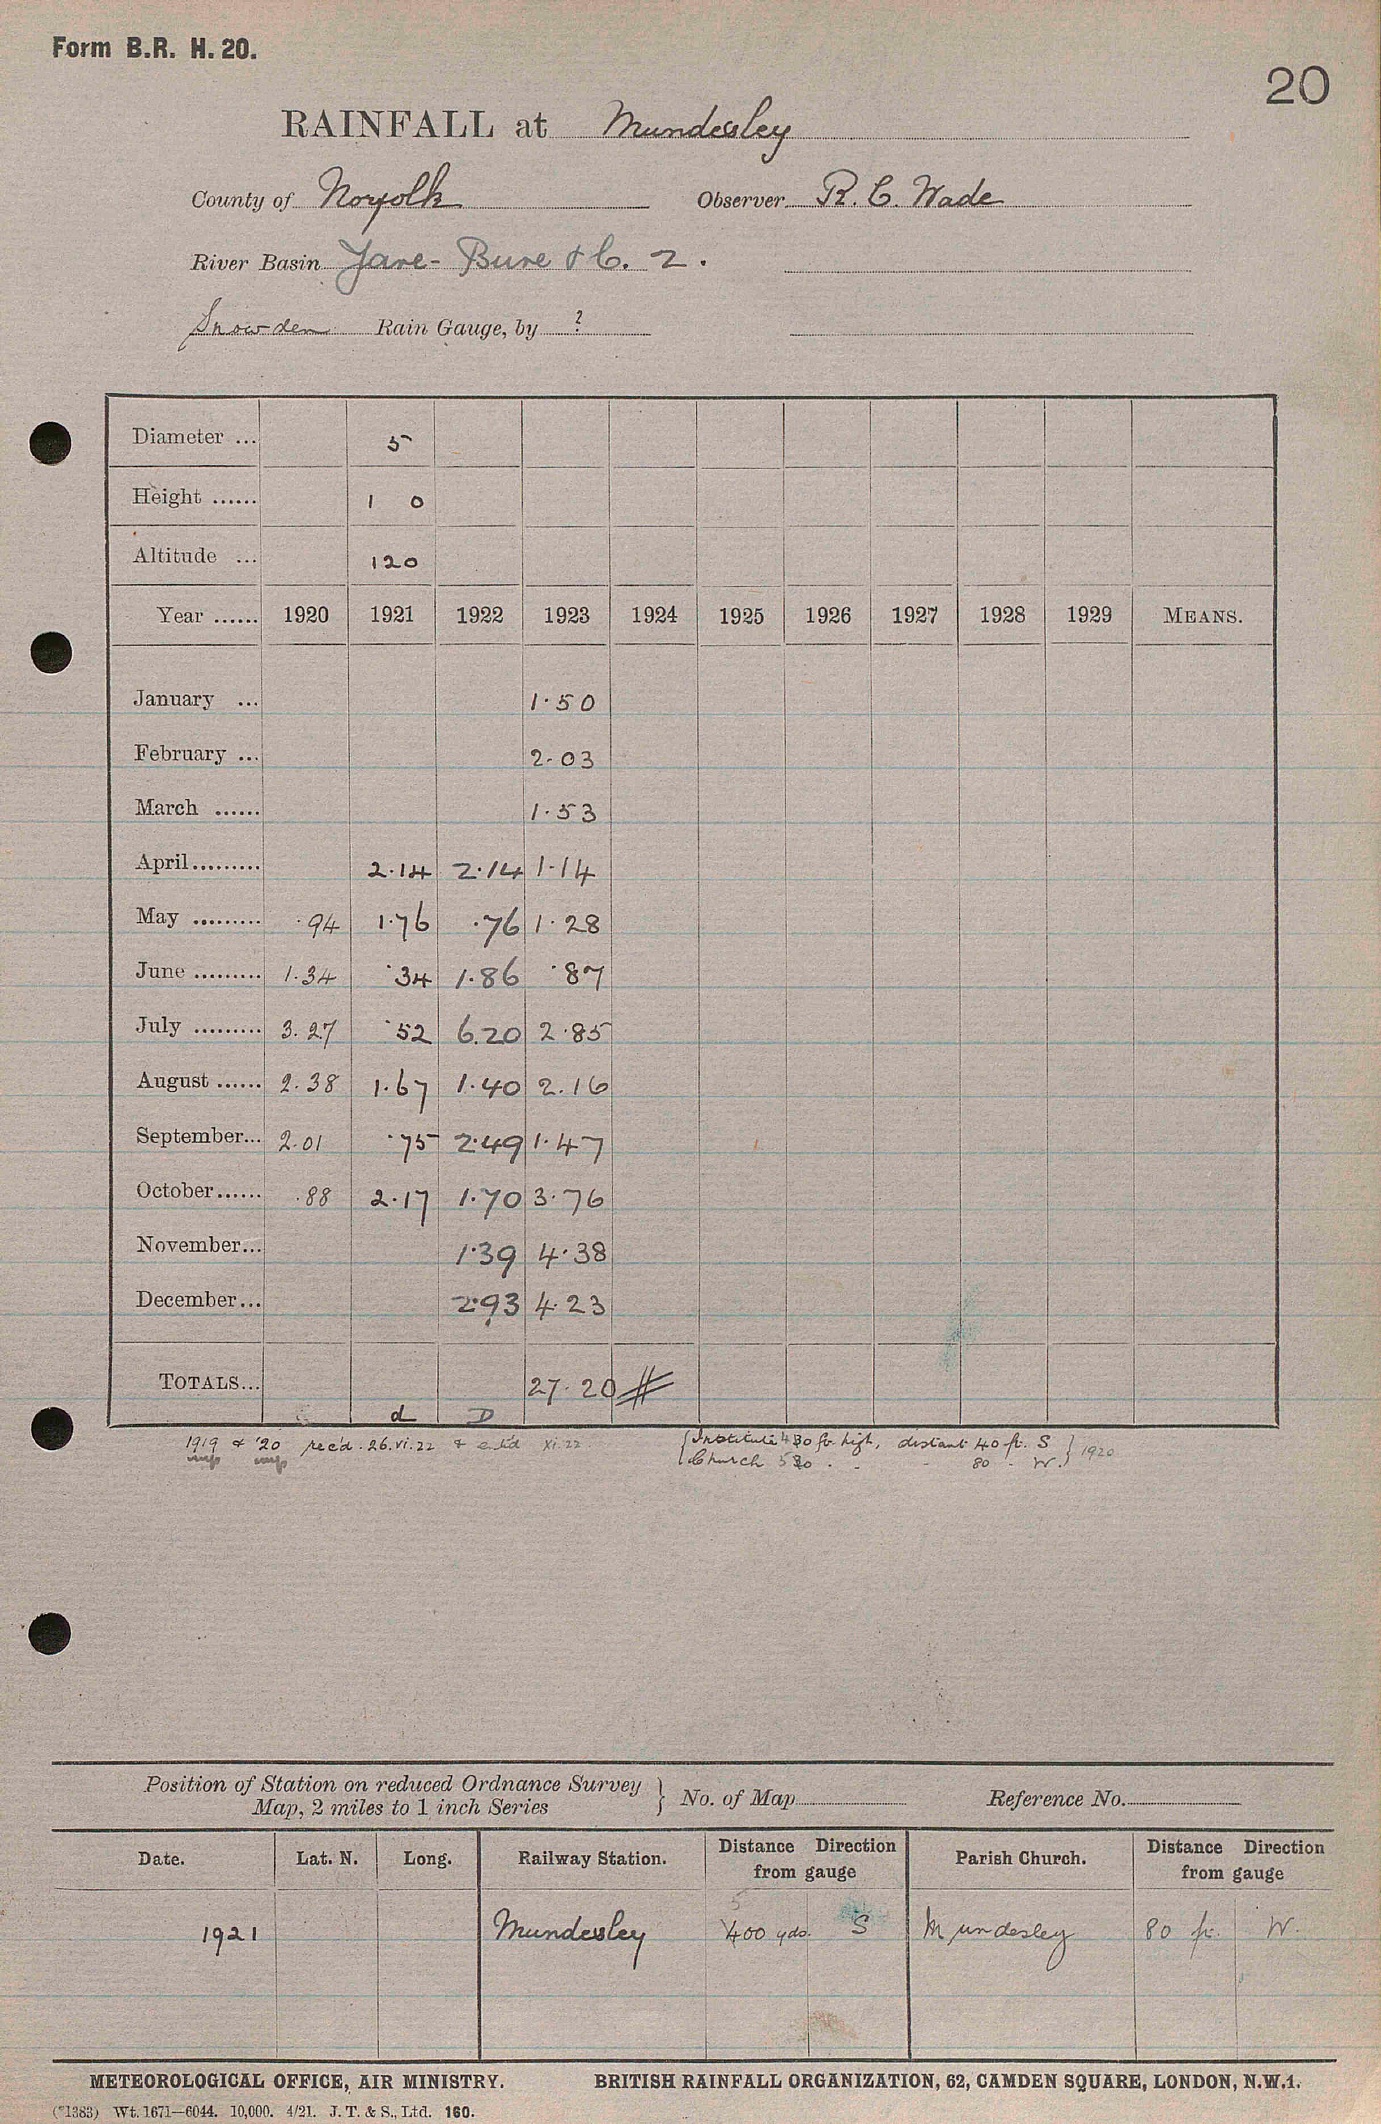 Form B.R. H. 20.
20
RAINFALL at Mundesley
County of Norfolk Observer R. C. Wade
River Basin Yare - Bure & C. 2.
Snowden Rain Gauge, by ?
Diameter ... 5
Height ...... 1 0
Altitude ... 120
Year ...... 1920 1921 1922 1923 1924 1925 1926 1927 1928 1929 MEANS.
January ... 1.50
February ... 2.03
March ...... 1.53
April ......... 2.14 2.14 1.14
May ......... .94 1.76 .76 1.28
June ......... 1.34 .34 1.86 .87
July ......... 3.27 .52 6.20 2.85
August ...... 2.38 1.67 1.40 2.16
September... 2.01 .75 2.49 1.47
October...... .88 2.17 1.70 3.76
November... 1.39 4.38
December... 2.93 4.23
TOTALS... 27.20 #
d D
1919 & '20 rec'd. 26.vi.22 & xi.22
{Institute 30 ft. high, distant 40 ft. S } 1920
{Church 80 - W. }
Position of Station on reduced Ordnance Survey } No. of Map Reference No.
Map, 2 miles to 1 inch Series
Date. Lat. N. Long. Railway Station. Distance Direction from gauge Parish Church. Distance Direction from gauge
5
1921 Mundesley 400 yds. S Mundesley 80 ft. W.
METEOROLOGICAL OFFICE, AIR MINISTRY. BRITISH RAINFALL ORGANIZATION, 62, CAMDEN SQUARE, LONDON, N.W.1.
(*1383) Wt. 1671—6044. 10,000. 4/21. J. T. & S., Ltd. 160.